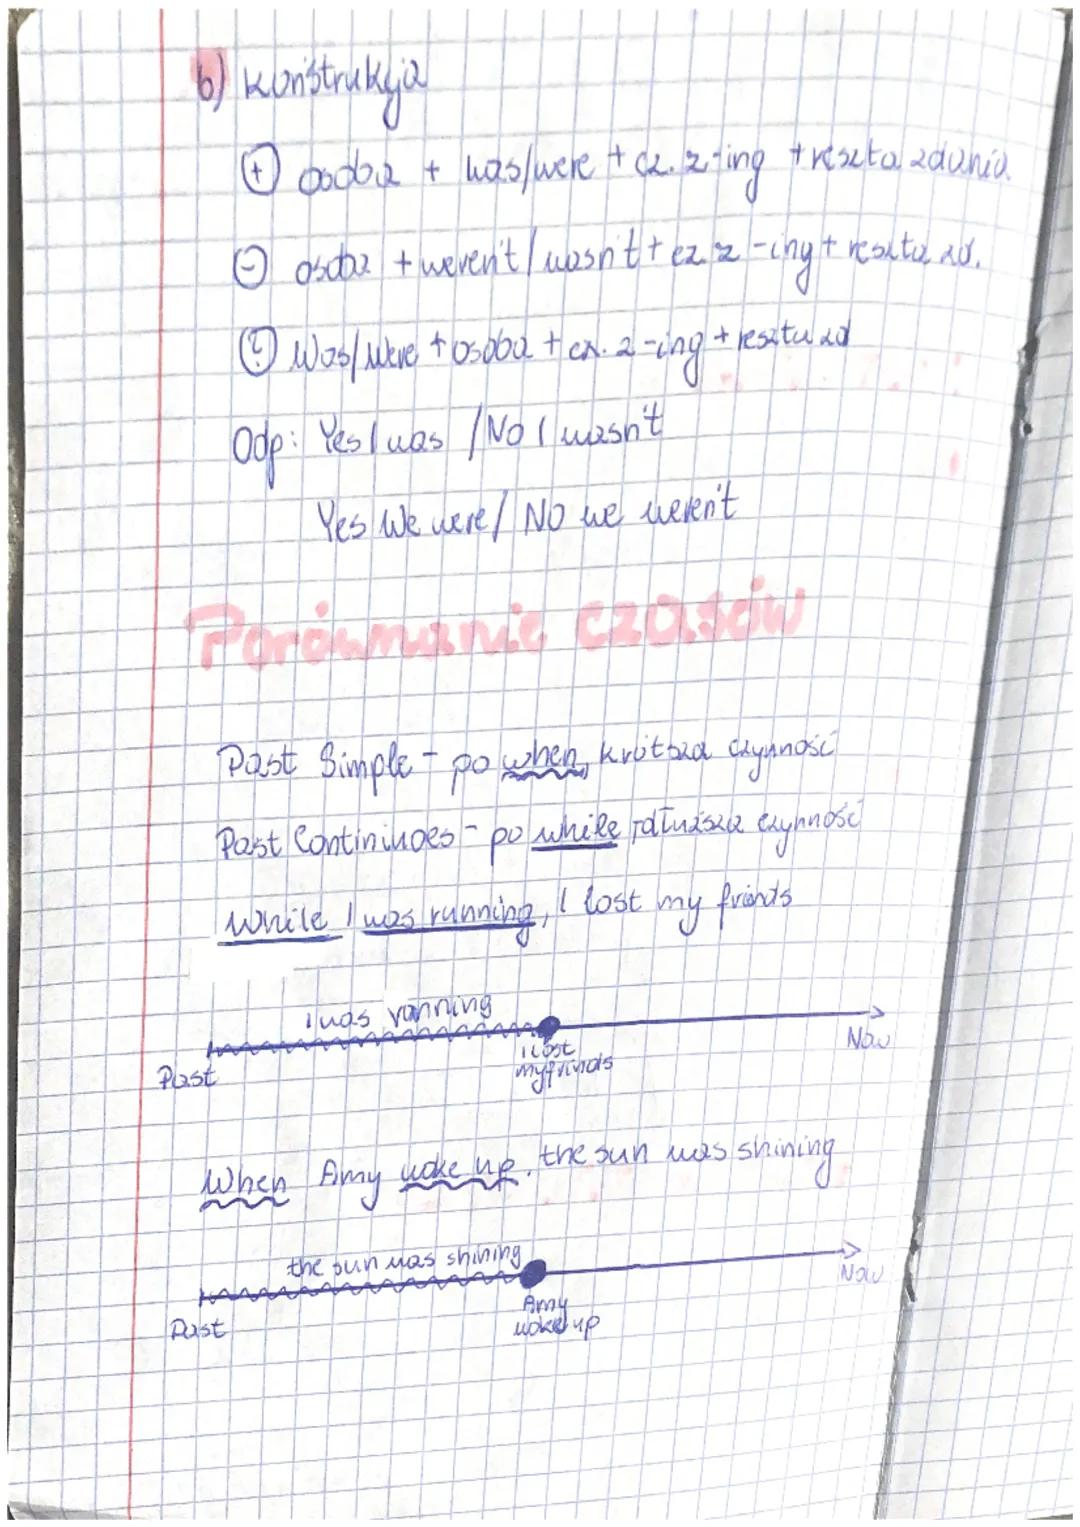 b) Konstrukcja
(+) osoba + was/were + cz. z -ing + reszta zdania
(-) osoba + weren't/wasn't + cz z -ing + reszta zd.
(?) Was/Were + osoba + cz. z -ing + reszta zd
Odp: Yes I was /No I wasn't
Yes We were/ NO we weren't
Porównanie czasów
Past Simple - po when, krótsza czynność
Past Continiuoes - po while, dłuższa czynność
While I was running, I lost my frinds
I was running
I lost
my frinds
Past
Now
When Amy woke up, the sun was shining
the sun was shining
Amy
woke up
Past
Now